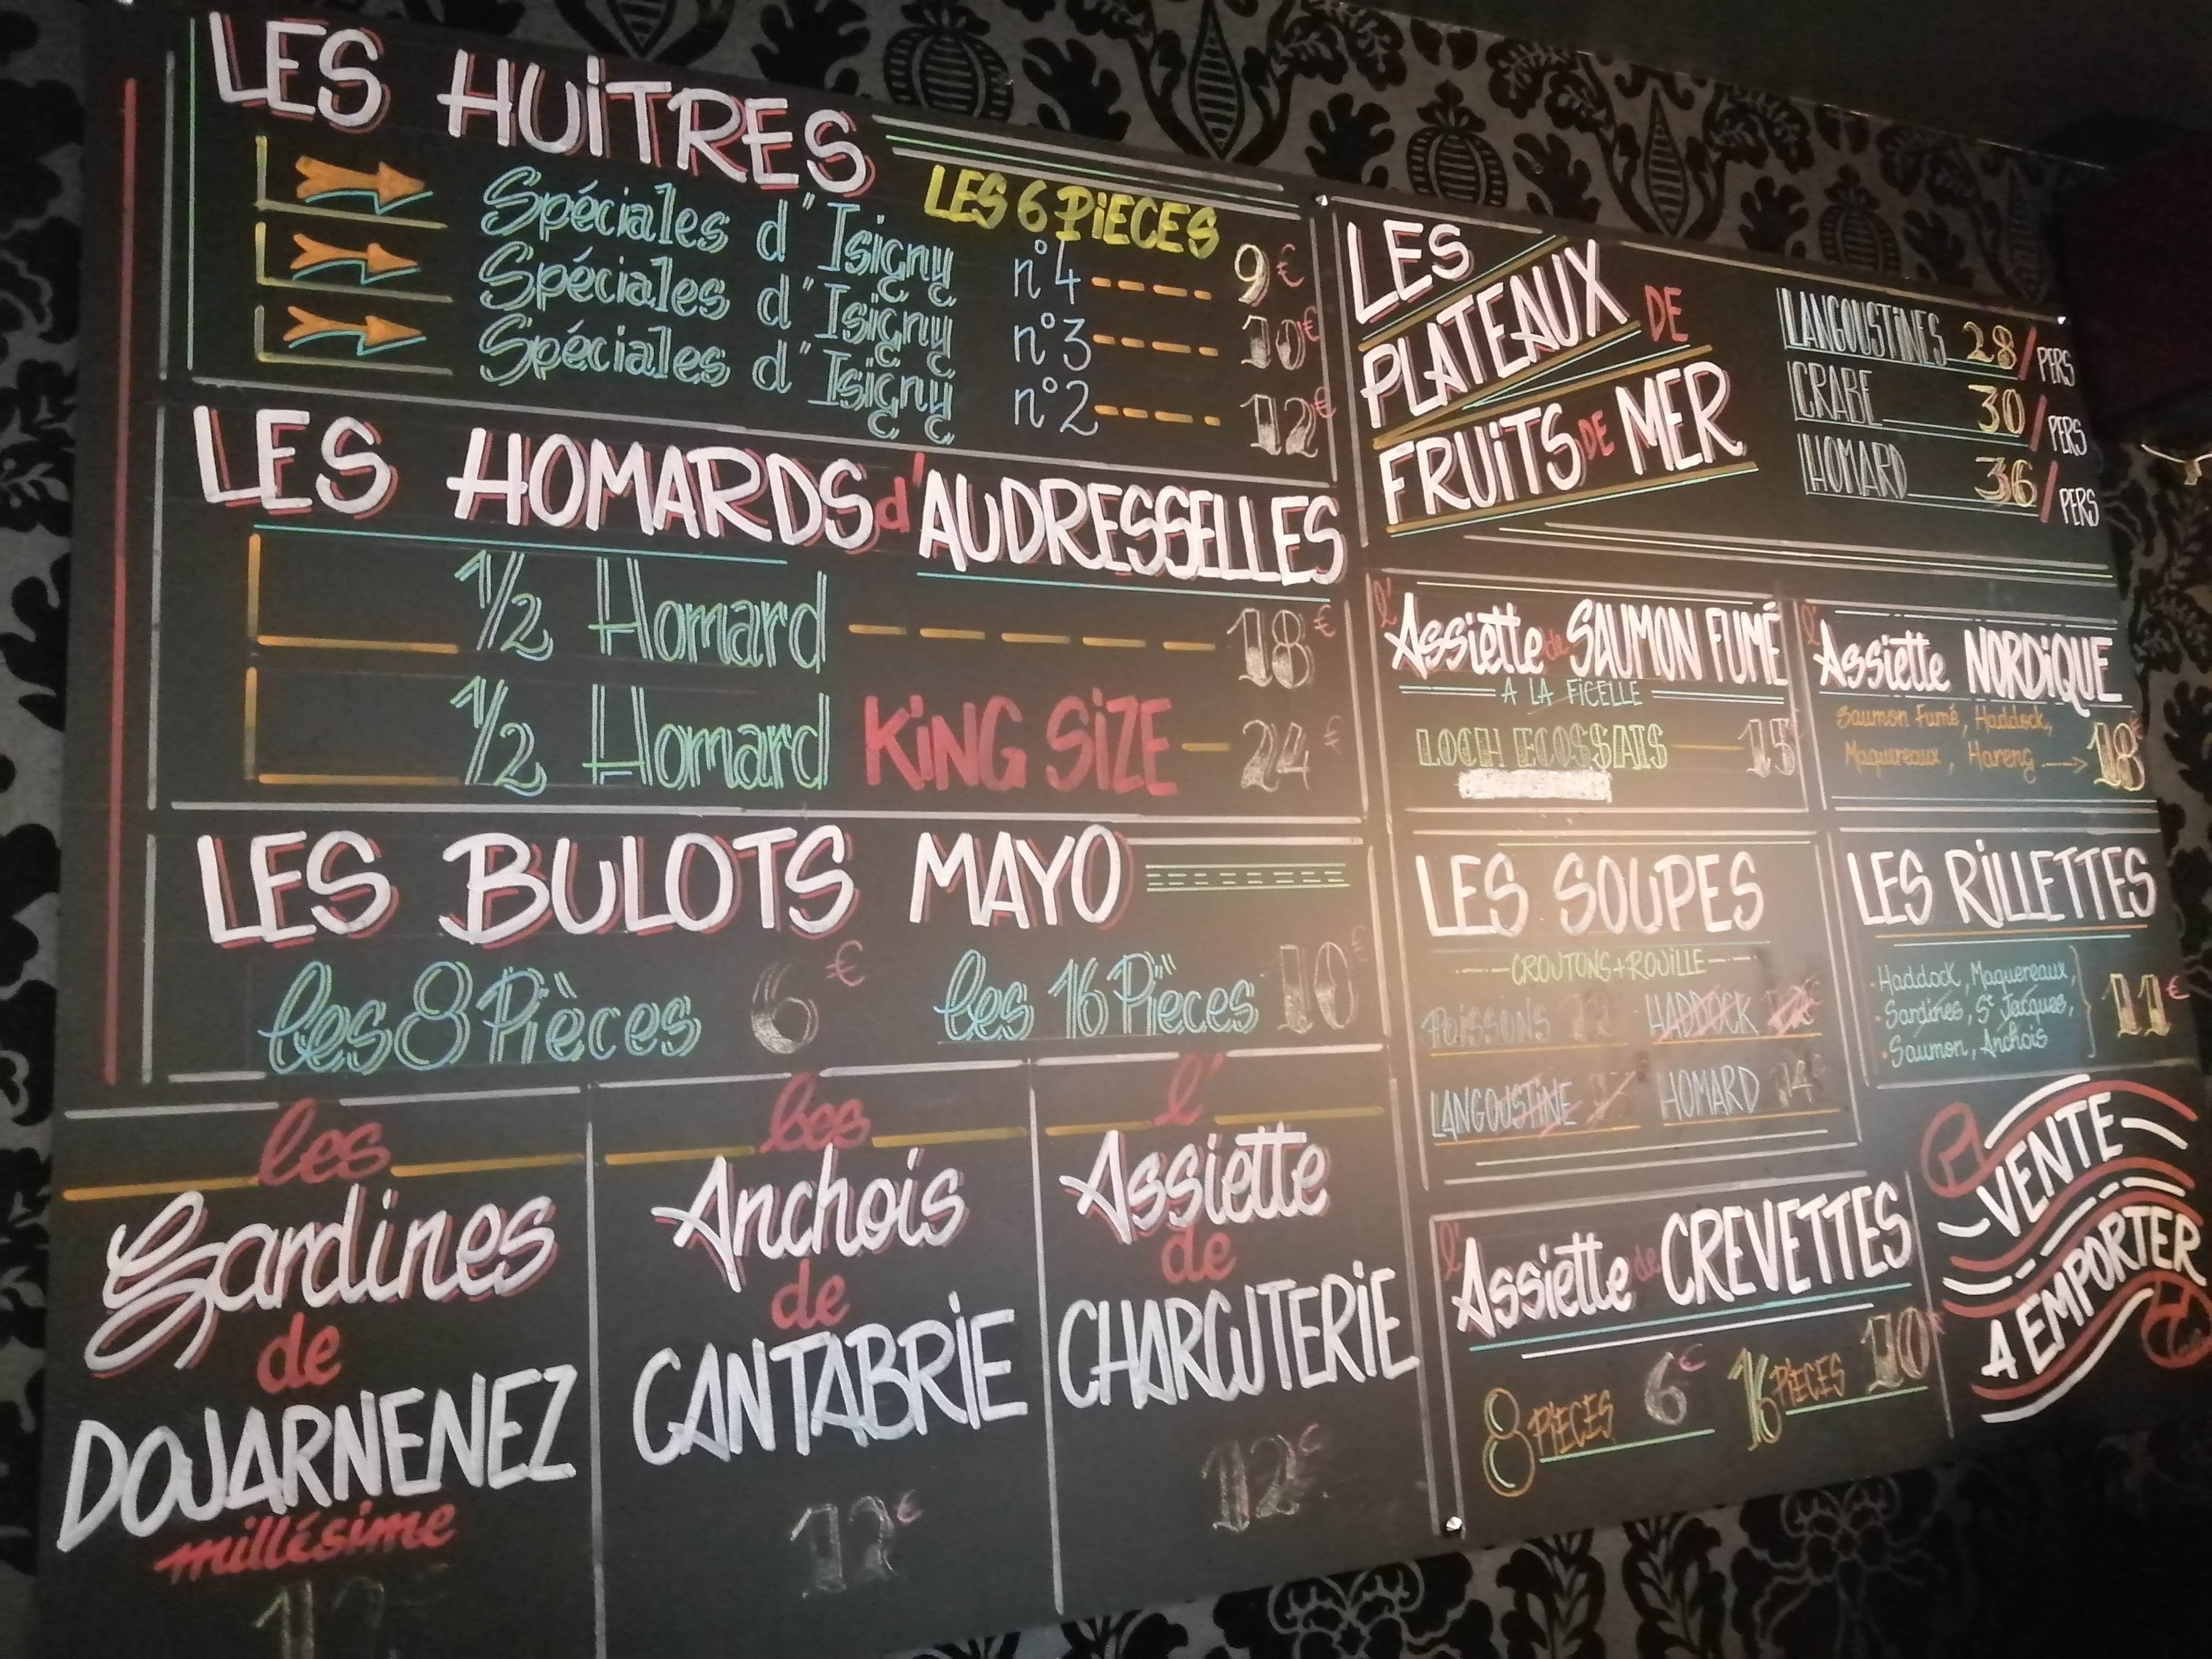 LES HUiTRES
LES 6 PiECES
Spéciales d'Isigny n°4 ---- 9€
Spéciales d'Isigny n°3 ---- 10€
Spéciales d'Isigny n°2 ---- 12€
LES HOMARDS d'AUDRESSELLES
1/2 Homard ----- 18€
1/2 Homard KiNG SiZE - 24€
LES BULOTS MAYO
les 8 Pièces 6€ les 16 Pièces 10€
les
Sardines
de
DOUARNENEZ
millésime
les
Anchois
de
CANTABRiE
12€
l'
Assiette
de
CHARCUTERiE
12€
LES
PLATEAUX DE
FRUiTS DE MER
LANGOUSTiNES 28/PERS
CRABE 30/PERS
HOMARD 36/PERS
l'Assiette de SAUMON FUMÉ
A LA FiCELLE
LOCH ECOSSAIS 15€
l'Assiette NORDiQUE
Saumon Fumé, Haddock,
Maquereaux, Hareng → 18€
LES SOUPES
CROUTONS+ROUiLLE
POiSSONS HADDOCK
LANGOUSTiNE HOMARD 14€
LES RiLLETTES
• Haddock, Maquereaux,
• Sardines, St Jacques,
• Saumon, Anchois
11€
l'Assiette de CREVETTES
8 PiECES 6€ 16 PiECES 10€
VENTE
A EMPORTER